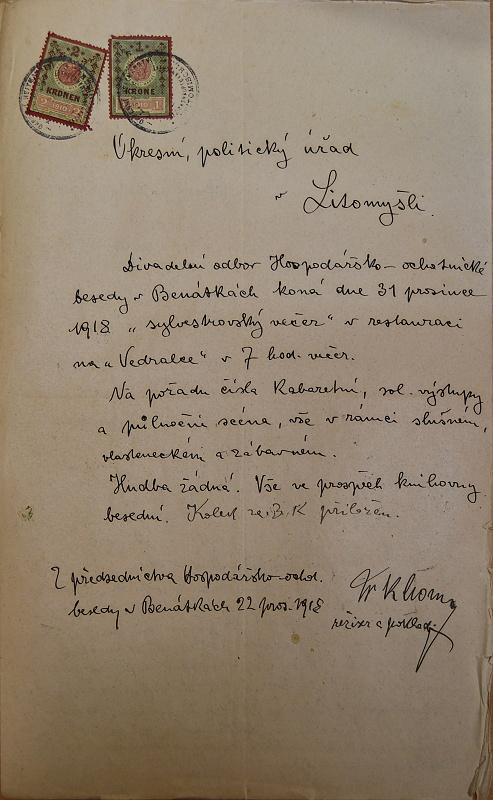 2
KRONEN
2 1910 2
1
KRONE
1910 1
Okresní, politický úřad
v Litomyšli.
Divadelní odbor Hospodářsko-ochotnické
besedy v Benátkách koná dne 31 prosince
1918 „sylvestrovský večer" v restauraci
na „Vedralce" v 7 hod. večer.
Na pořadu čísla Kabaretní, sol. výstupy
a půlnoční scéna, vše v rámci slušném,
vlasteneckém a zábavném.
Hudba žádná. Vše ve prospěch knihovny
besední. Kolek za 3 K přiložen.
Z předsednictva Hospodářsko-ochot.
besedy v Benátkách 22 pros. 1918
Fr
režiser a